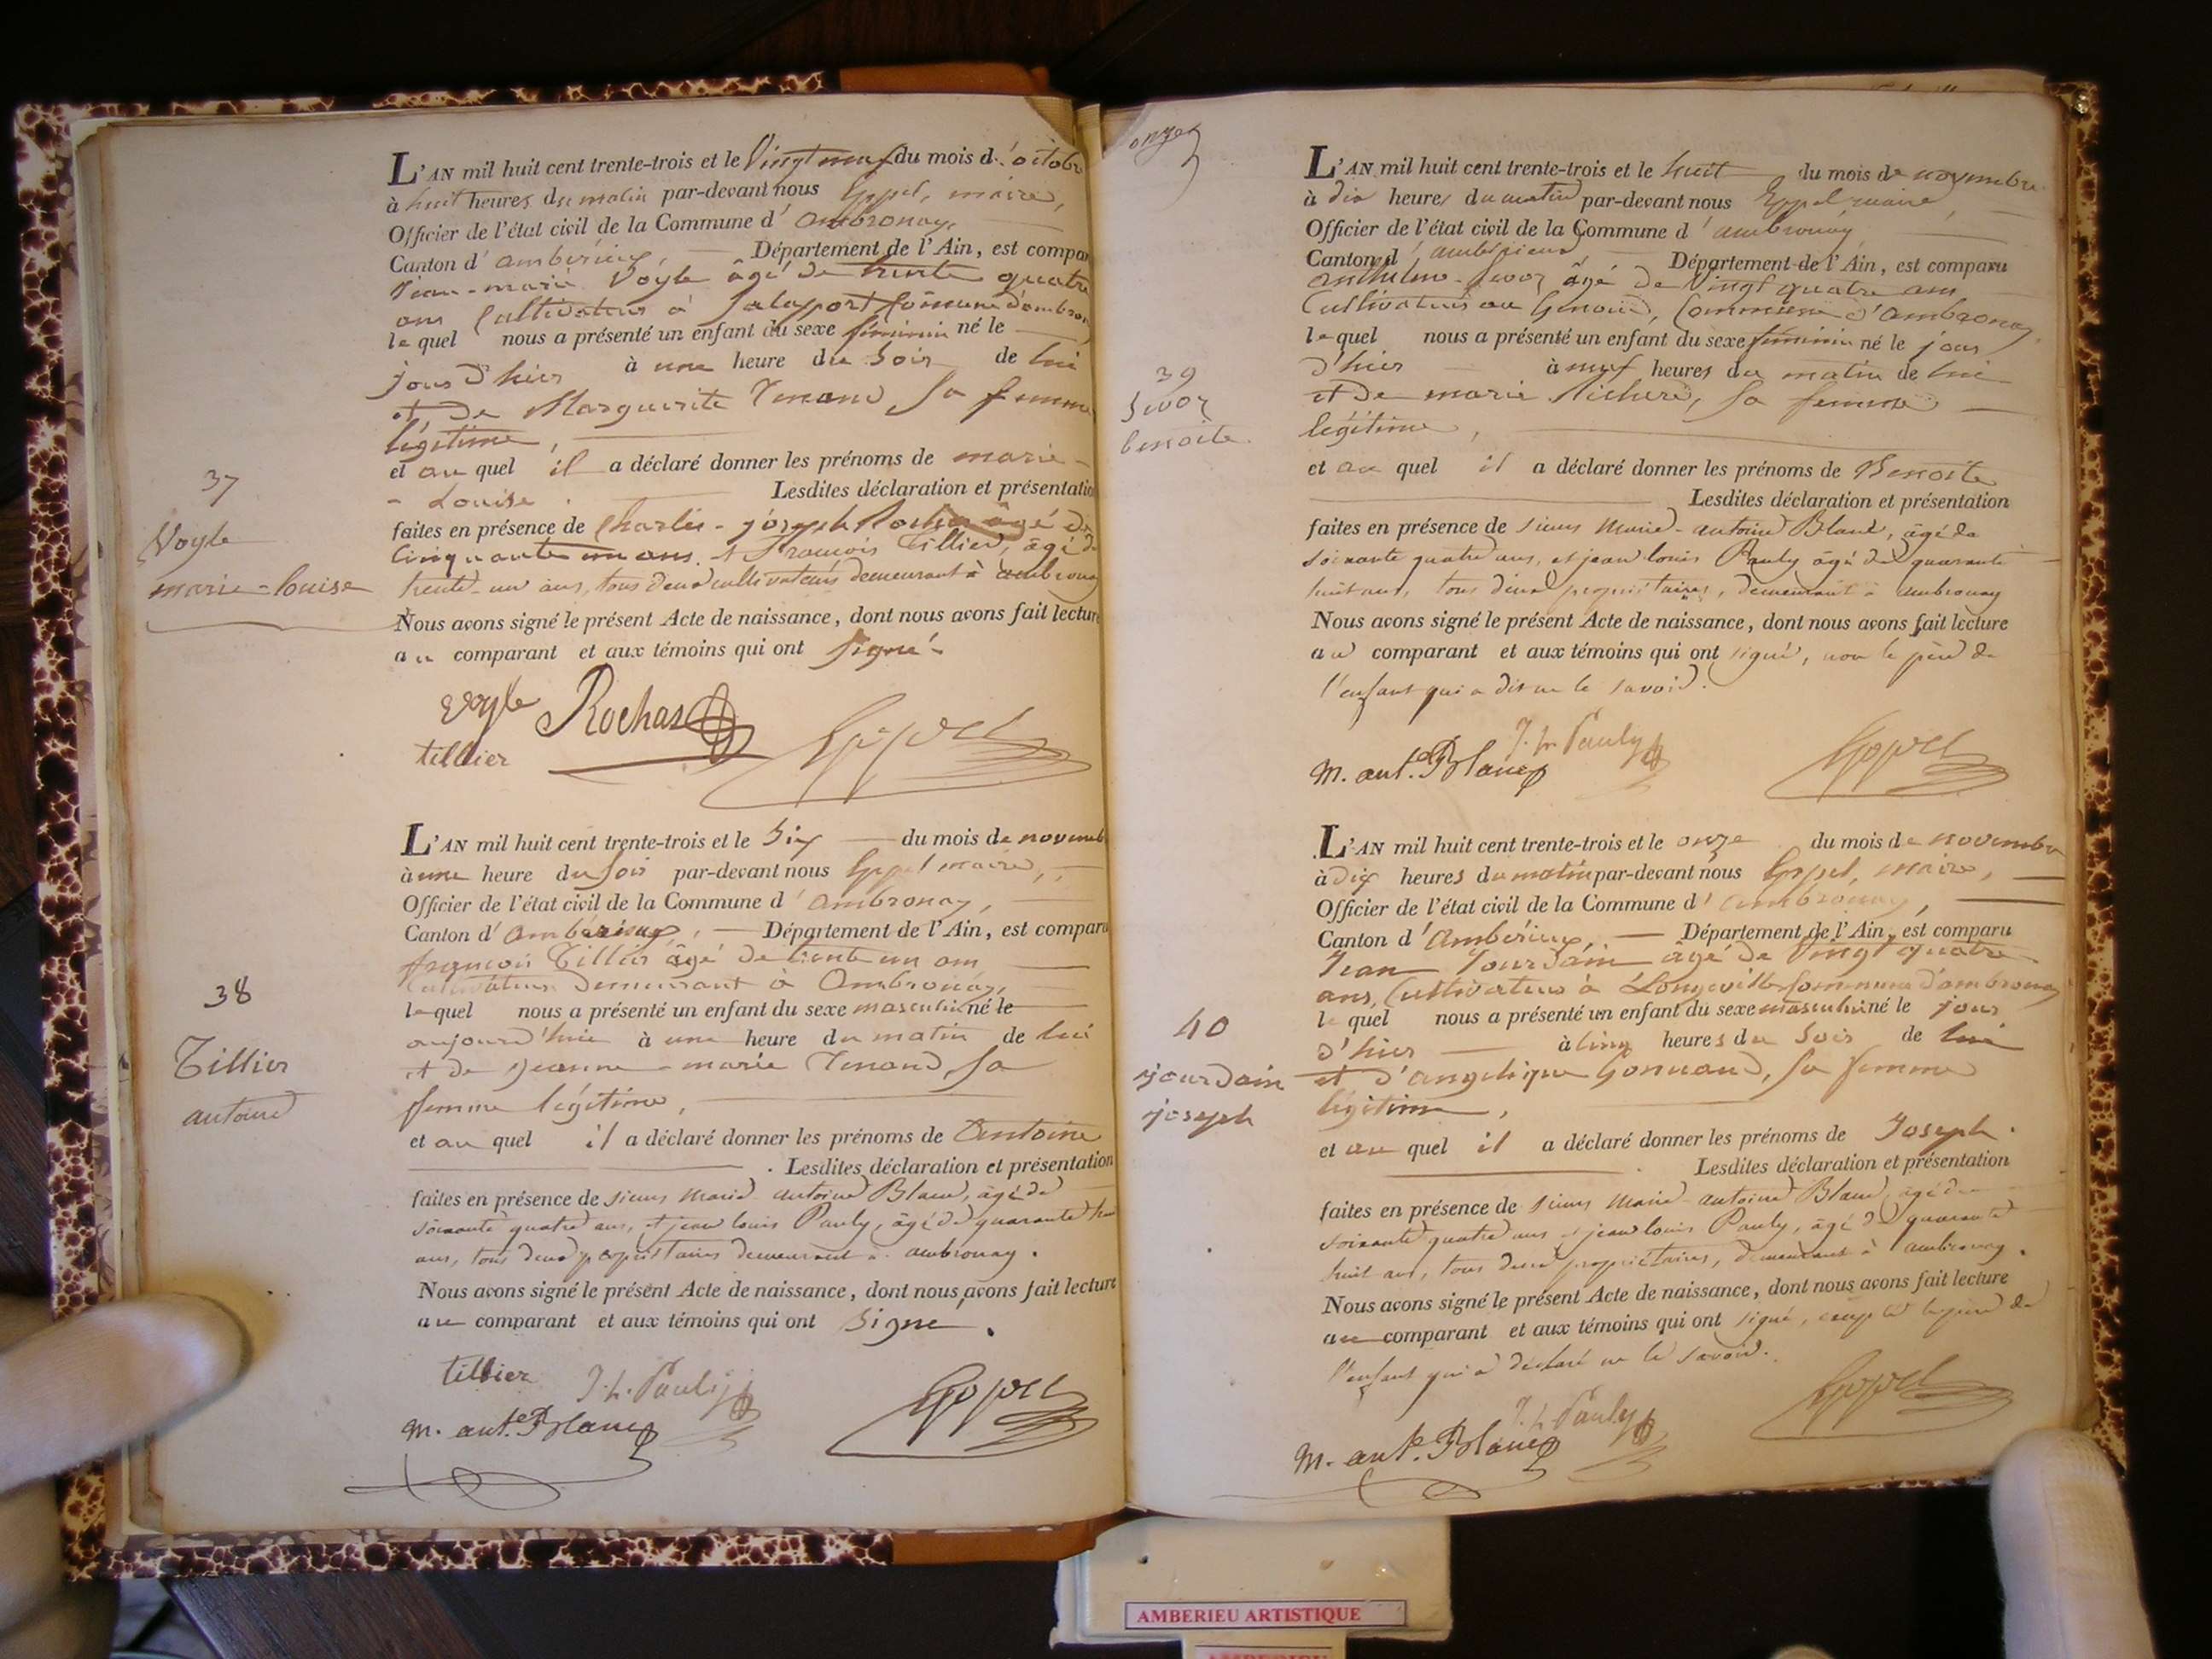 37
Voyle
marie-louise
L'AN mil huit cent trente-trois et le Vingt neuf du mois d'octobre
à huit heures du matin par-devant nous Eppel, maire,
Officier de l'état civil de la Commune d'ambronay,
Canton d'ambérieux, Département de l'Ain, est compar
Jean-marie Voyle âgé de trente quatre
ans Cultivateur à Salaport Commune d'ambron
lequel nous a présenté un enfant du sexe féminin né le
jour d'hier à une heure du Soir de lui
et de Marguerite Tenand, Sa femme
légitime,
et au quel il a déclaré donner les prénoms de marie-
-Louise. Lesdites déclaration et présentation
faites en présence de Charles-joseph Rochas âgé de
Cinquante un ans et François Tillier, âgé de
trente-un ans, tous deux cultivateurs demeurant à ambronay
Nous avons signé le présent Acte de naissance, dont nous avons fait lecture
au comparant et aux témoins qui ont Signé-
voyle Rochas
tillier Eppel
38
Tillier
antoine
L'AN mil huit cent trente-trois et le Six du mois de novemb
à une heure du Soir par-devant nous Eppel maire,
Officier de l'état civil de la Commune d'ambronay,
Canton d'ambérieux, Département de l'Ain, est comparu
françois Tillier âgé de trente un ans
Cultivateur demeurant à Ambronay,
lequel nous a présenté un enfant du sexe masculin né le
aujourd'hui à une heure du matin de lui
et de Jeanne-marie Tenand, Sa
femme légitime,
et au quel il a déclaré donner les prénoms de Antoine
. Lesdites déclaration et présentation
faites en présence de sieurs Marie-antoine Blanc, âgé de
soixante quatre ans, et jean louis Pauly, âgé de quarante huit
ans, tous deux propriétaires demeurant à ambronay.
Nous avons signé le présent Acte de naissance, dont nous avons fait lecture
au comparant et aux témoins qui ont Signé.
tillier J. L. Pauly
m. ant.e Blanc Eppel
onze
39
benoite
L'AN mil huit cent trente-trois et le huit du mois de novembre
à dix heures du matin par-devant nous Eppel maire,
Officier de l'état civil de la Commune d'ambronay
Canton d'ambérieux Département de l'Ain, est comparu
anthelme âgé de Vingt quatre ans
Cultivateur au Genoud, Commune d'ambronay,
lequel nous a présenté un enfant du sexe féminin né le jour
d'hier à neuf heures du matin de lui
et de marie, Sa femme
légitime,
et au quel il a déclaré donner les prénoms de Benoite
Lesdites déclaration et présentation
faites en présence de sieurs Marie-antoine Blanc, âgé de
soixante quatre ans, et jean louis Pauly âgé de quarante
huit ans, tous deux propriétaires, demeurant à ambronay
Nous avons signé le présent Acte de naissance, dont nous avons fait lecture
au comparant et aux témoins qui ont signé, non le père de
l'enfant qui a dit ne le savoir.
J. L. Pauly
m. ant.e Blanc Eppel
40
jourdain
joseph
L'AN mil huit cent trente-trois et le onze du mois de novembre
à dix heures du matin par-devant nous Eppel, maire,
Officier de l'état civil de la Commune d'ambronay,
Canton d'Ambérieux, Département de l'Ain, est comparu
Jean Jourdain âgé de Vingt quatre
ans, Cultivateur à Longeville Commune d'ambronay
lequel nous a présenté un enfant du sexe masculin né le jour
d'hier à cinq heures du Soir de lui
et d'angelique Gonnand, Sa femme
légitime,
et au quel il a déclaré donner les prénoms de Joseph.
Lesdites déclaration et présentation
faites en présence de sieurs Marie-antoine Blanc, âgé de
soixante quatre ans et jean louis Pauly, âgé de quarante
huit ans, tous deux propriétaires, demeurant à ambronay.
Nous avons signé le présent Acte de naissance, dont nous avons fait lecture
au comparant et aux témoins qui ont signé, excepté le père de
l'enfant qui a déclaré ne le savoir.
J. L. Pauly
m. ant.e Blanc Eppel
AMBERIEU ARTISTIQUE